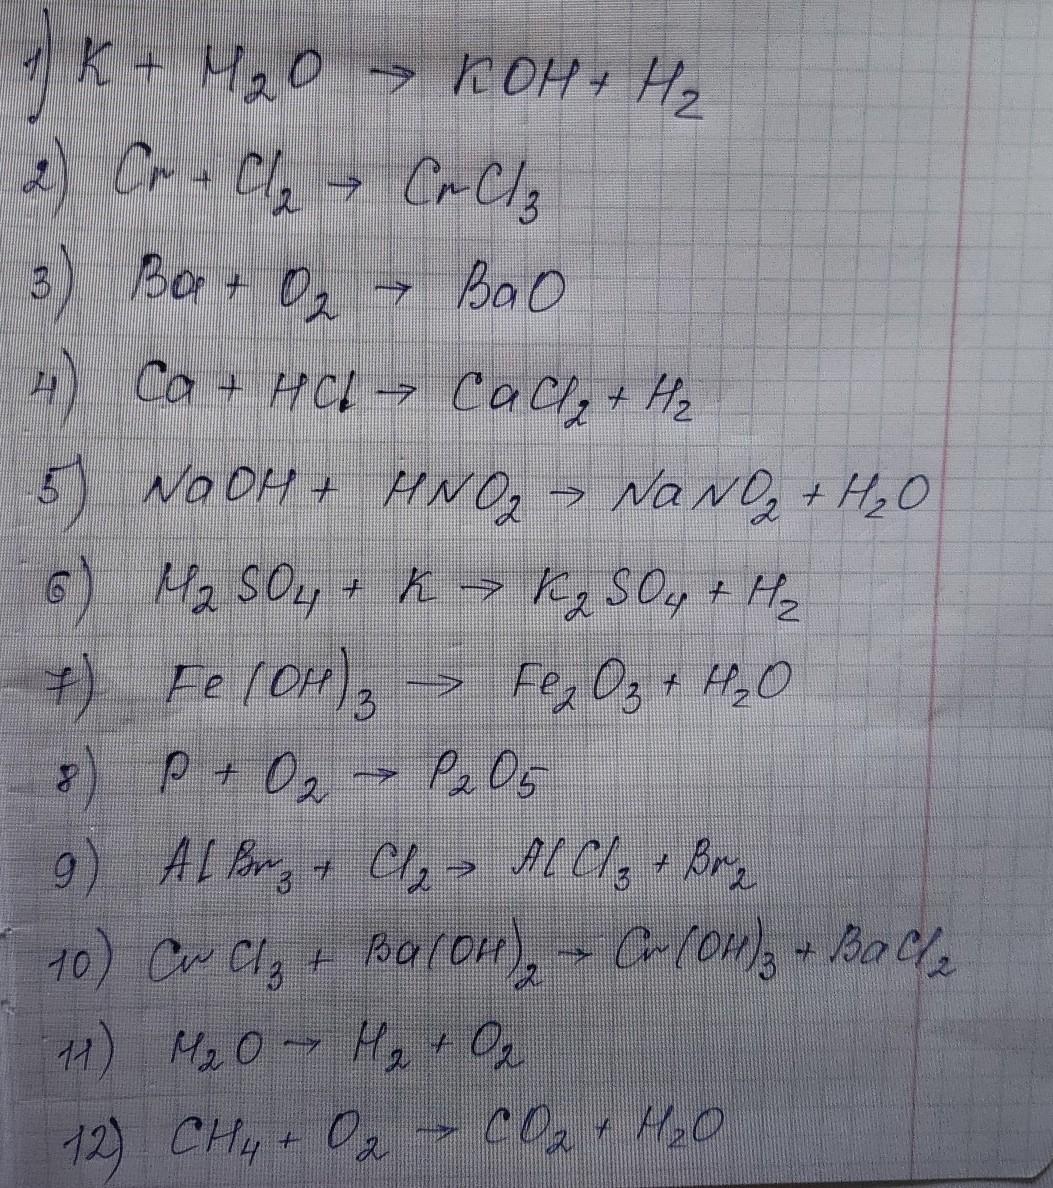 1) K + H₂O → KOH + H₂
2) Cr + Cl₂ → CrCl₃
3) Ba + O₂ → BaO
4) Ca + HCl → CaCl₂ + H₂
5) NaOH + HNO₂ → NaNO₂ + H₂O
6) H₂SO₄ + K → K₂SO₄ + H₂
7) Fe(OH)₃ → Fe₂O₃ + H₂O
8) P + O₂ → P₂O₅
9) AlBr₃ + Cl₂ → AlCl₃ + Br₂
10) CrCl₃ + Ba(OH)₂ → Cr(OH)₃ + BaCl₂
11) H₂O → H₂ + O₂
12) CH₄ + O₂ → CO₂ + H₂O